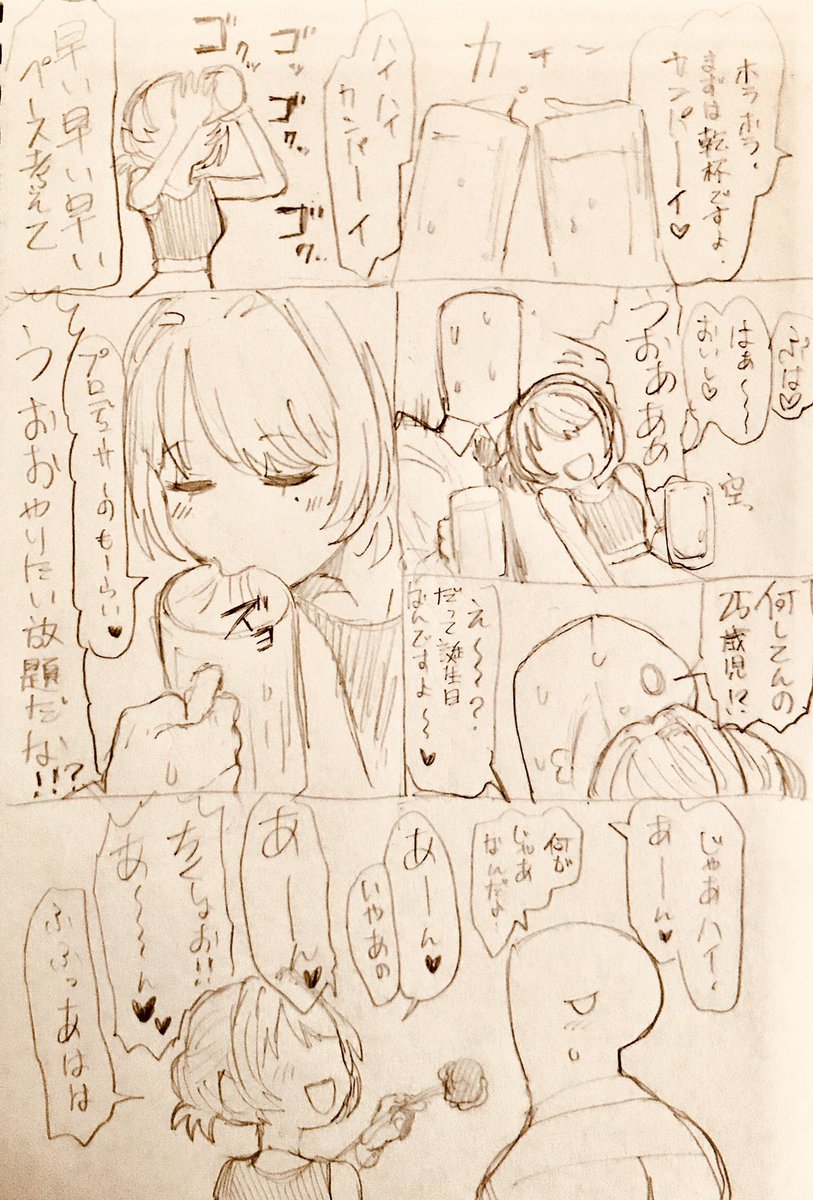 ホラホラ、
まずは乾杯ですよ、
カンパーイ♡
カチン
ハイハイ
カンパーイ
ゴクッ
ゴッ
ゴクッ
ゴク
早い早い早い
ペース考えて
ぷは♡
はぁ〜〜
おいし♡
うおぁああ
空
何してんの
25歳児!?
え〜〜?
だって誕生日
なんですよ〜♡
プロデューサーのもーらい♡
ズヨ
うおおやりたい放題だな!!?
じゃあハイ、
あーん♥
何が
じゃあ
なんだよ!
あーん♥
いやあの
あーん♥
ちくしょお!!
あ〜〜ん♥♥
ふふっあはは